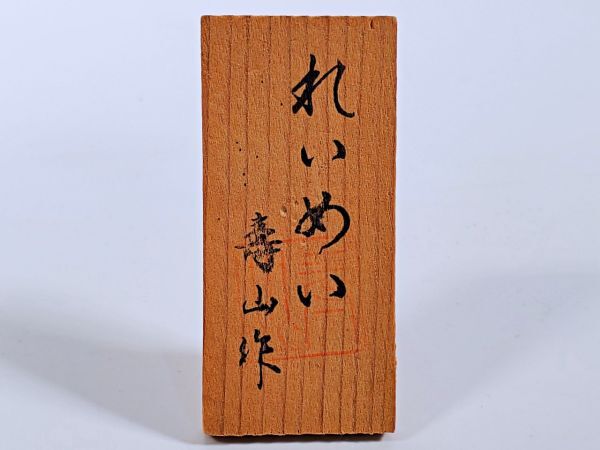 れいめい
壽山作